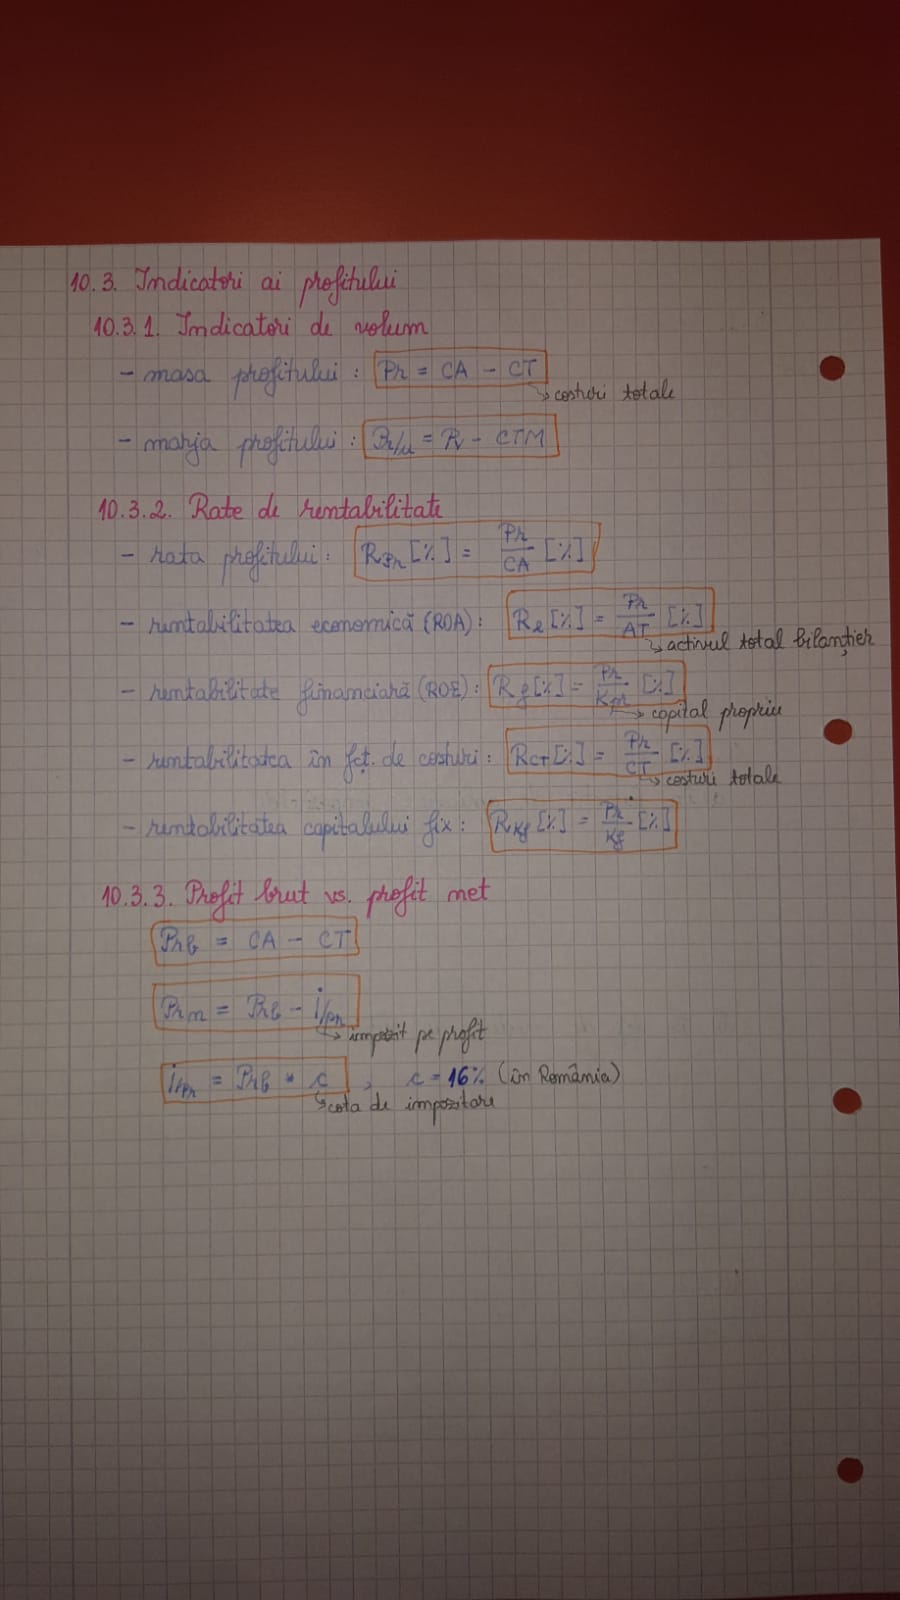 10.3. Indicatori ai profitului
10.3.1. Indicatori de volum
- masa profitului : Pr = CA - CT
↳ costuri totale
- marja profitului : Pr/u = P - CTM
10.3.2. Rate de rentabilitate
- rata profitului : RPr [%] = Pr/CA [%]
- rentabilitatea economică (ROA) : Re [%] = Pr/AT [%]
↳ activul total bilanțier
- rentabilitate financiară (ROE) : Rf [%] = Pr/Kpr [%]
↳ capital propriu
- rentabilitatea în fcț. de costuri : RCT [%] = Pr/CT [%]
↳ costuri totale
- rentabilitatea capitalului fix : RKf [%] = Pr/Kf [%]
10.3.3. Profit brut vs. profit net
Prb = CA - CT
Prn = Prb - i/pr
↳ impozit pe profit
i/pr = Prb * c , c = 16% (în România)
↳ cota de impozitare